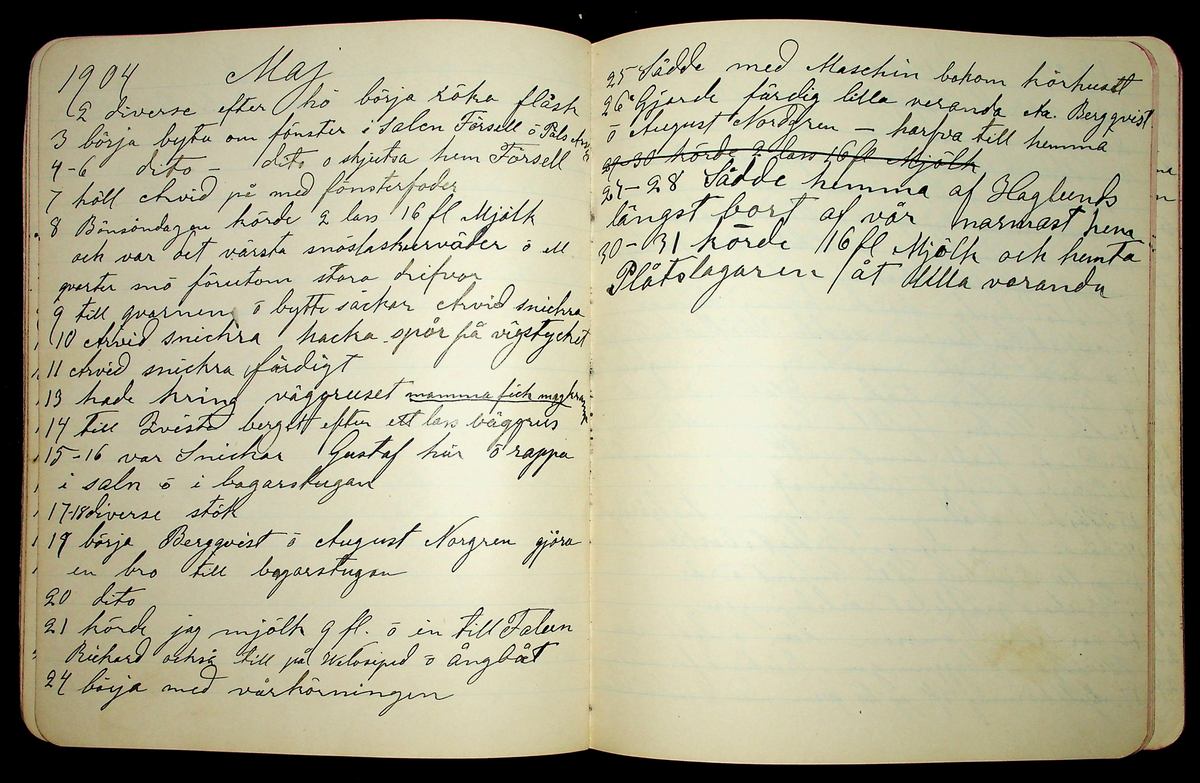 1904 Maj
2 diverse efter hö börja röka fläsk
3 börja bytu om fönster i Salen Försell ö Pals
4-6 dito - dito o skjutsa hem Försell
7 höll Arvid på med fönsterfoder
8 Bönsöndagen körde 2 lass 16 fl Mjölk
och var det värsta snöslaskerväder ö ett
qvarter snö förutom stora drifvor
9 till qvarnen ö bytte säckar Arvid snickra
10 Arvid snickra hacka spår på vägstycket
11 Arvid snickra färdigt
13 hade kring väggruset mamma fick
14 till berget efter ett lass väggrus
15-16 var Snickar Gustaf här ö rappa
i saln ö i bagarstugan
17-18 diverse stök
19 börja Bergqvist ö August Norgren gjöra
en bro till bagarstugan
20 dito
21 körde jag mjölk 9 fl. ö in till Falun
Richard också till på Velosiped ö ångbåt
24 börja med vårkörningen
25 Sådde med Maschin bakom körhuset
26 Gjorde färdig lilla veranda Aa. Bergqvist
ö August Nordgren - harfva till hemma
29-30 körde 2 lass 16 fl Mjölk
27-28 Sådde hemma af Haglunds
längst bort af vår narmast hem
30-31 körde 16 fl Mjölk och hemta
Plåtslagaren åt lilla veranda